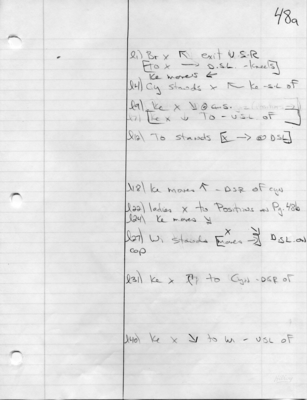 48a
l1) Br x ↖ exit U.S.R
[To x → D.SL - kneels]
Ke moves ←
l4) Cy stands x ↖ Ke - SL of
l9) Ke x ↘ @ C.S.
[Ke x ↓ To - USL of]
l12) To stands [x → DSL]
l18) Ke moves ↑ - DSR of Cyn
l22) Ladies x to Positions on Pg. 42b
l24) Ke moves ↘
l27) Wi stands [moves x ↘] DSL on
cop
l31) Ke x to Cyn - DSR of
l40) Ke x ↘ to Wi - USL of